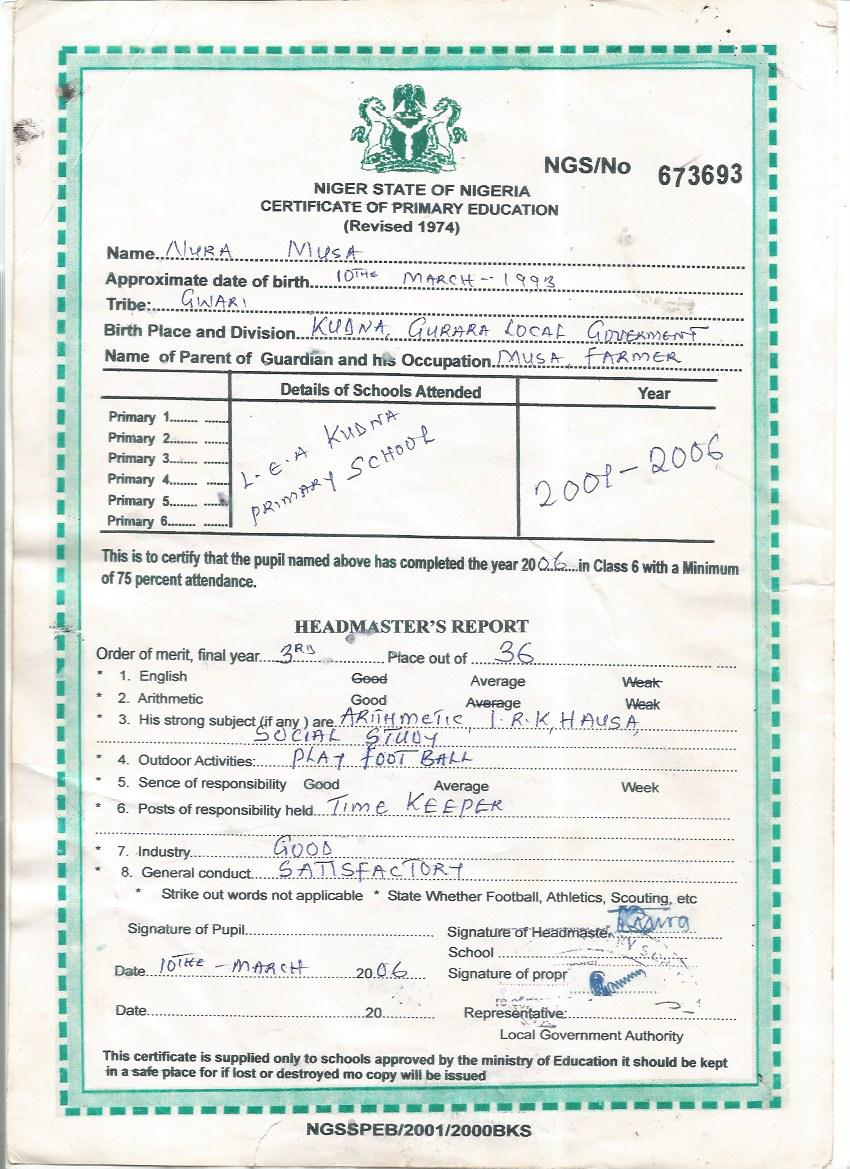 NGS/No 673693
NIGER STATE OF NIGERIA
CERTIFICATE OF PRIMARY EDUCATION
(Revised 1974)
Name NURA MUSA
Approximate date of birth 10THE MARCH - 1993
Tribe: GWARI
Birth Place and Division KUDNA, GURARA LOCAL GOVERMENT
Name of Parent of Guardian and his Occupation MUSA, FARMER
Details of Schools Attended Year
Primary 1
Primary 2
Primary 3
Primary 4
Primary 5
Primary 6
L.E.A KUDNA
PRIMARY SCHOOL
2001 - 2006
This is to certify that the pupil named above has completed the year 2006 in Class 6 with a Minimum
of 75 percent attendance.
HEADMASTER'S REPORT
Order of merit, final year 3RD Place out of 36
* 1. English Good Average Weak
* 2. Arithmetic Good Average Weak
* 3. His strong subject (if any ) are ARITHMETIC, I.R.K, HAUSA,
SOCIAL STUDY
* 4. Outdoor Activities: PLAY FOOT BALL
* 5. Sence of responsibility Good Average Week
* 6. Posts of responsibility held TIME KEEPER
* 7. Industry GOOD
* 8. General conduct SATISFACTORY
* Strike out words not applicable * State Whether Football, Athletics, Scouting, etc
Signature of Pupil Signature of Headmaster
School
Date 10THE - MARCH 2006 Signature of propr
Date 20 Representative:
Local Government Authority
This certificate is supplied only to schools approved by the ministry of Education it should be kept
in a safe place for if lost or destroyed mo copy will be issued
NGSSPEB/2001/2000BKS